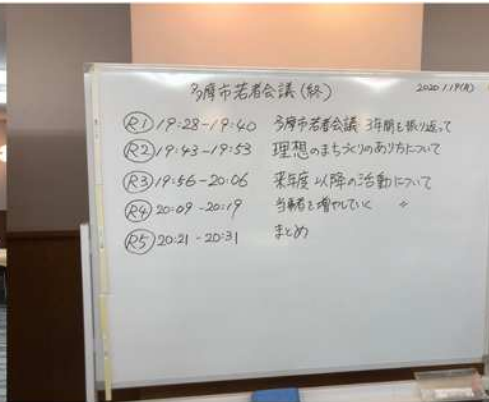 多摩市若者会議(終) 2020.1.19(月)
R1 19:28-19:40 多摩市若者会議 3年間を振り返って
R2 19:43-19:53 理想のまちづくりのあり方について
R3 19:56-20:06 来年度以降の活動について
R4 20:09-20:19 当事者を増やしていく 〃
R5 20:21-20:31 まとめ